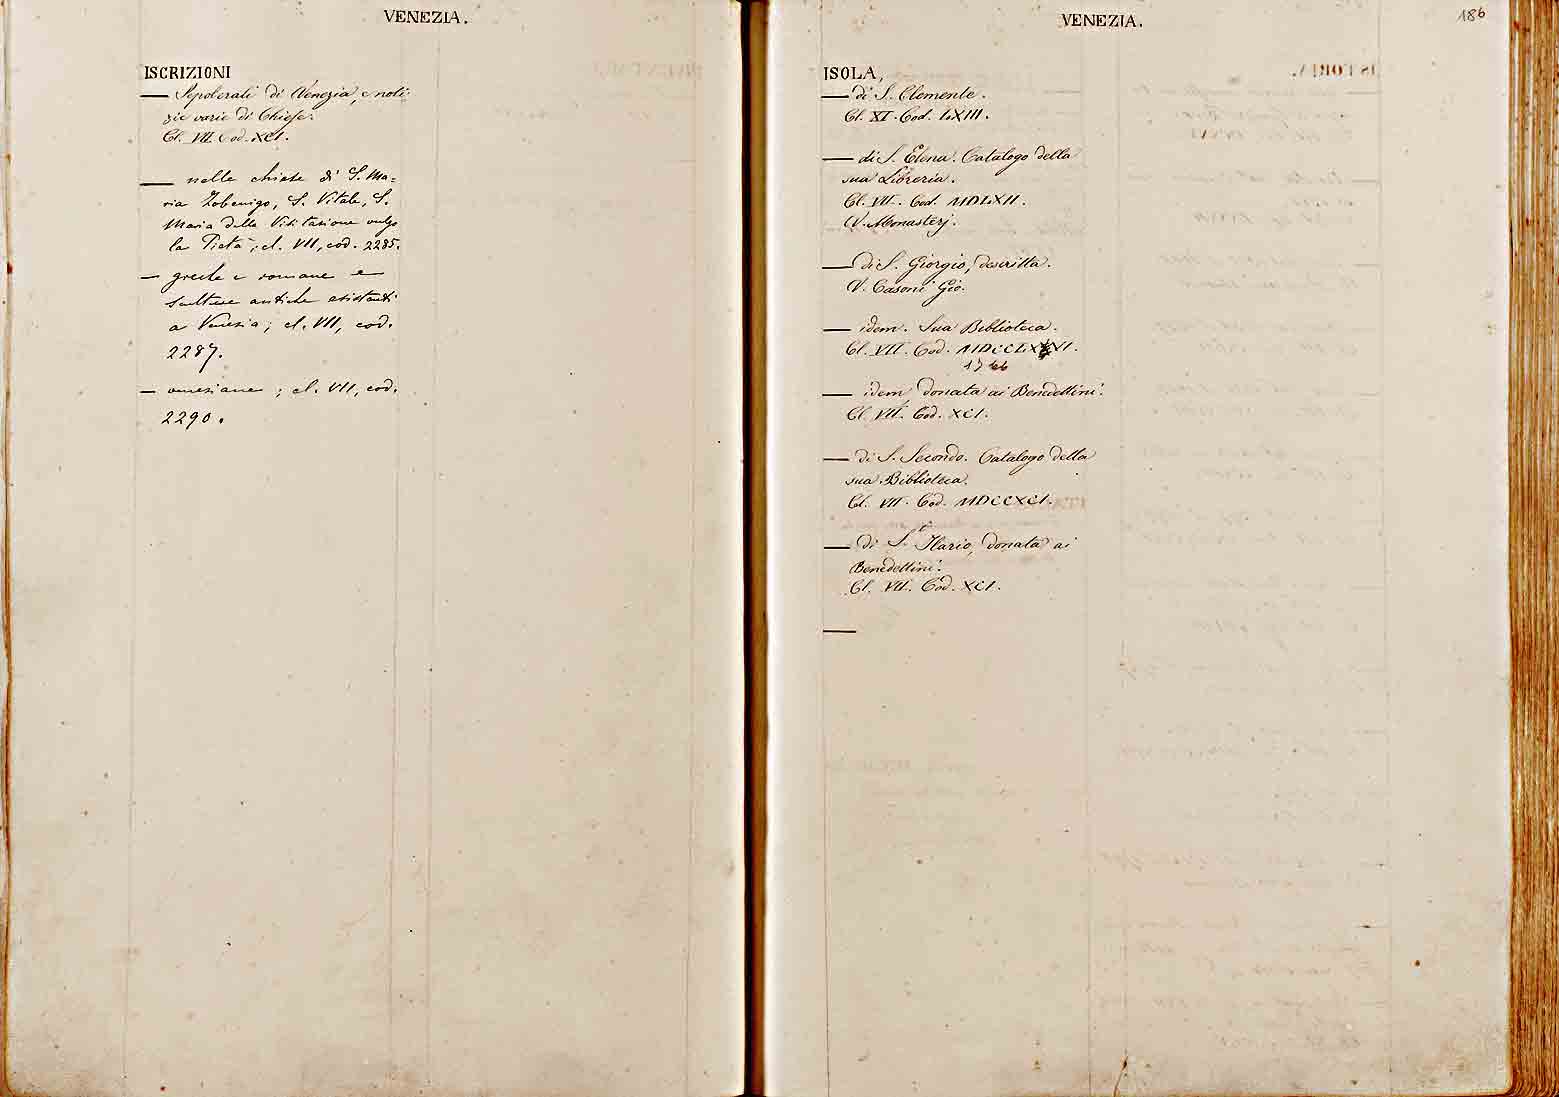 VENEZIA.
ISCRIZIONI
— Sepolcrali di Venezia, e noti-
zie varie di Chiese.
Cl. VII. Cod. XCI.
— nelle chiese di S. Ma=
ria Zobenigo, S. Vitale, S.
Maria della Visitazione vulgo
la Pietà; cl. VII, cod. 2285.
— greche e romane e
sculture antiche esistenti
a Venezia; cl. VII, cod.
2287.
— veneziane; cl. VII, cod.
2290.
VENEZIA.
186
ISOLA,
— di S. Clemente.
Cl. XI. Cod. LXIII.
— di S. Elena. Catalogo della
sua Libreria.
Cl. VII. Cod. MDLXII.
V. Monasterj.
— di S. Giorgio, descritta.
V. Casoni Gio.
— idem. Sua Biblioteca.
Cl. VII. Cod. MDCCLXVI.
1766
— idem donata ai Benedettini.
Cl. VII. Cod. XCI.
— di S. Secondo. Catalogo della
sua Biblioteca.
Cl. VII. Cod. MDCCXCI.
— di S. Ilario, donata ai
Benedettini.
Cl. VII. Cod. XCI.
—